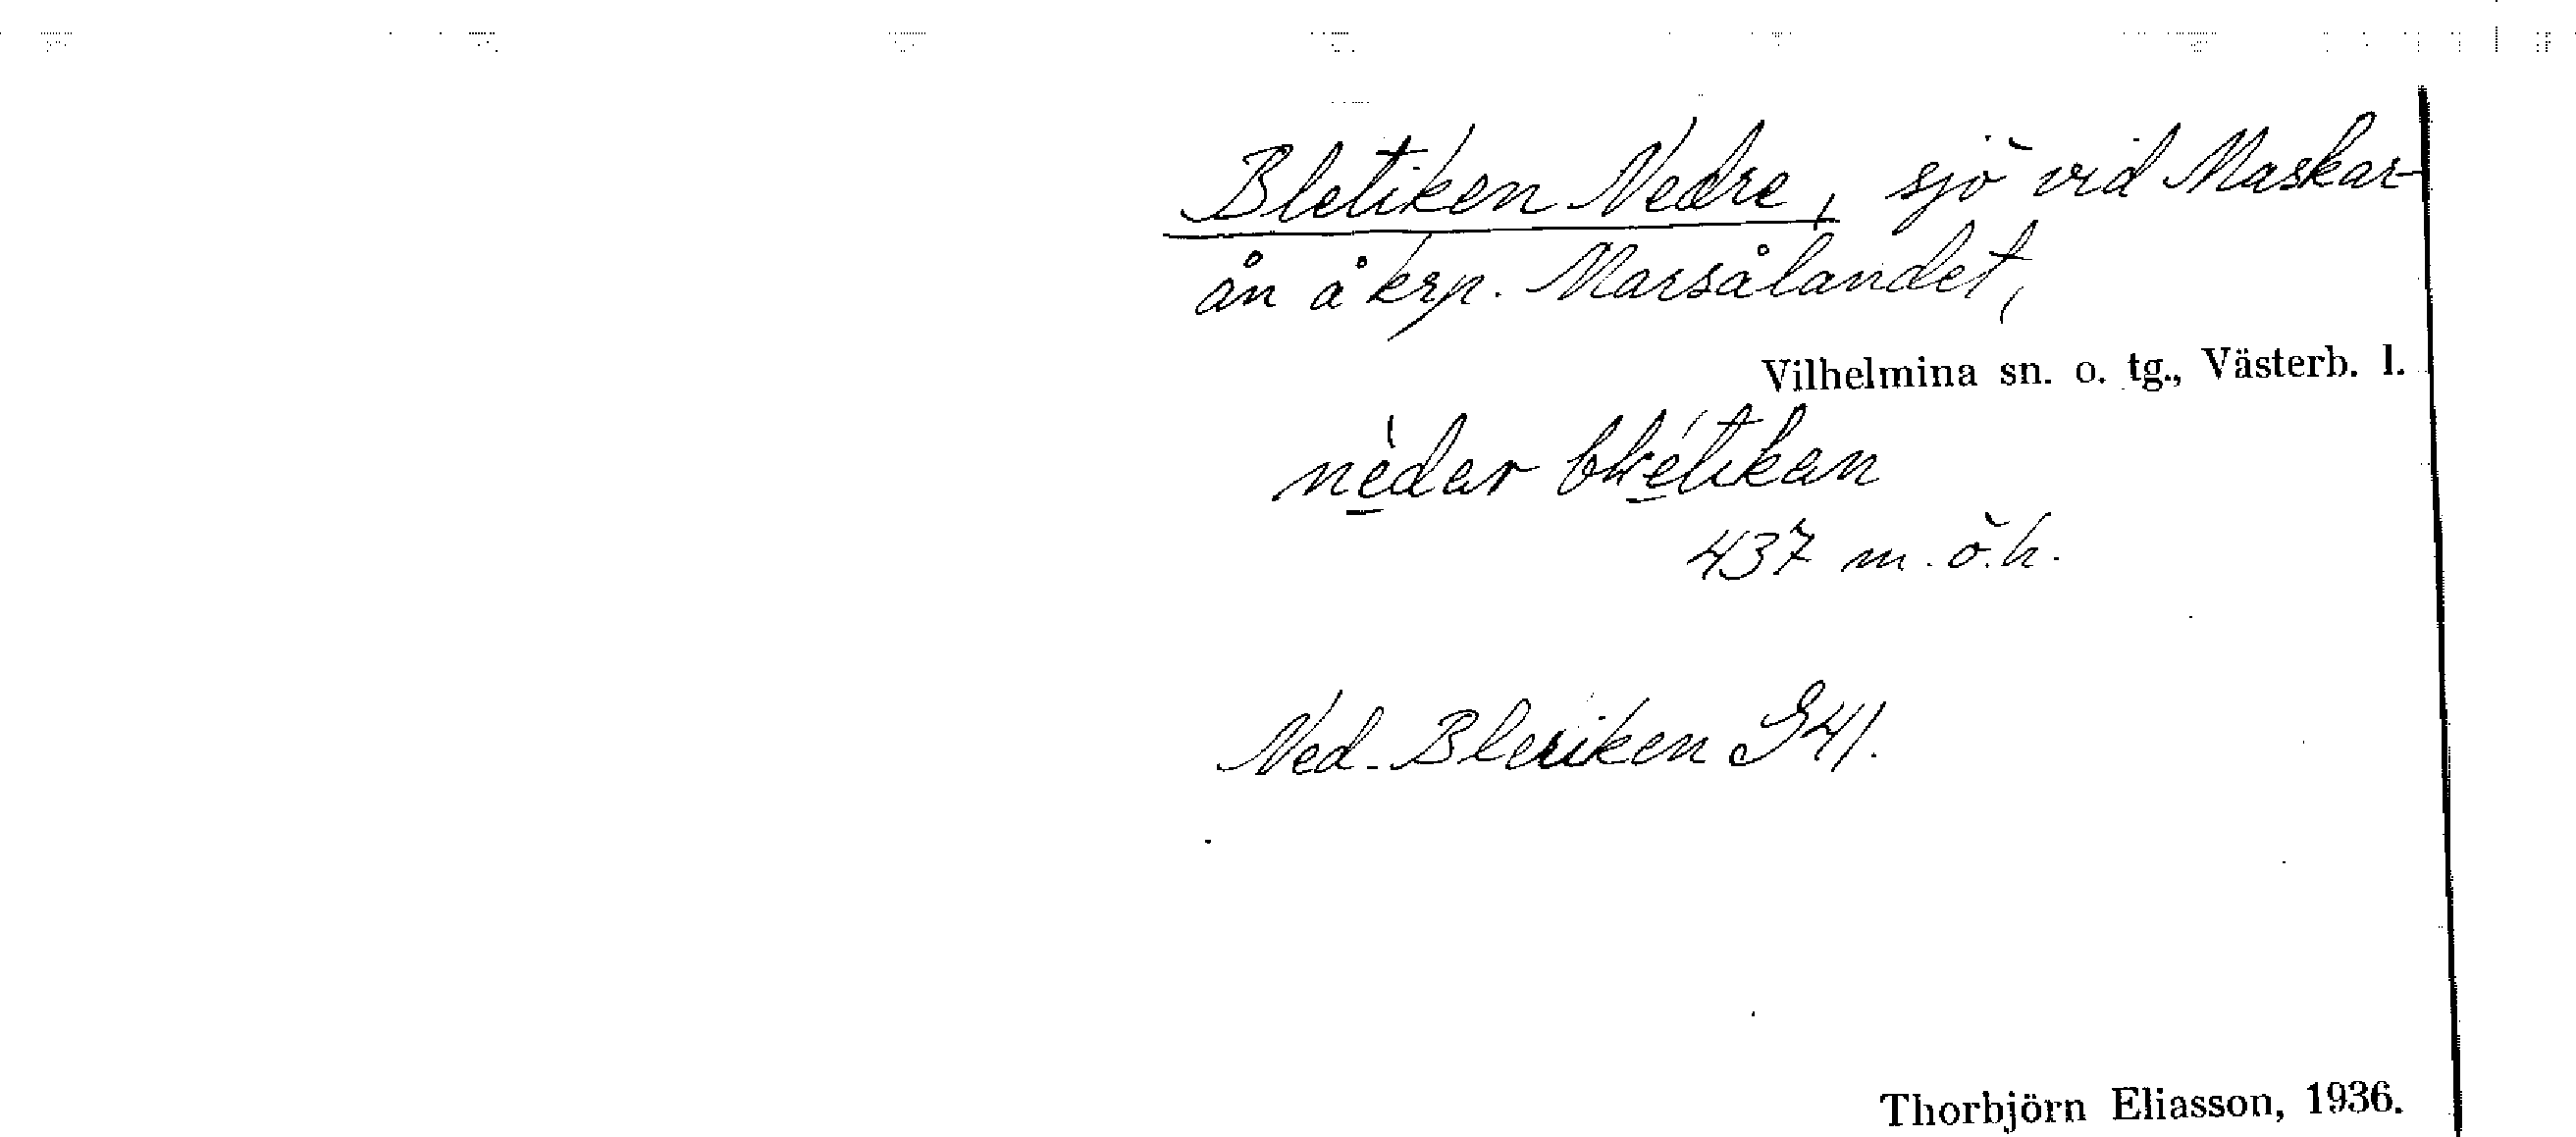 Bletiken Nedre, sjö vid Maskar-
ån å krp. Marsålandet,
Vilhelmina sn. o. tg., Västerb. l.
nèdar blétikan
437 m.ö.h.
Ned. Bleriken G41.
Thorbjörn Eliasson, 1936.